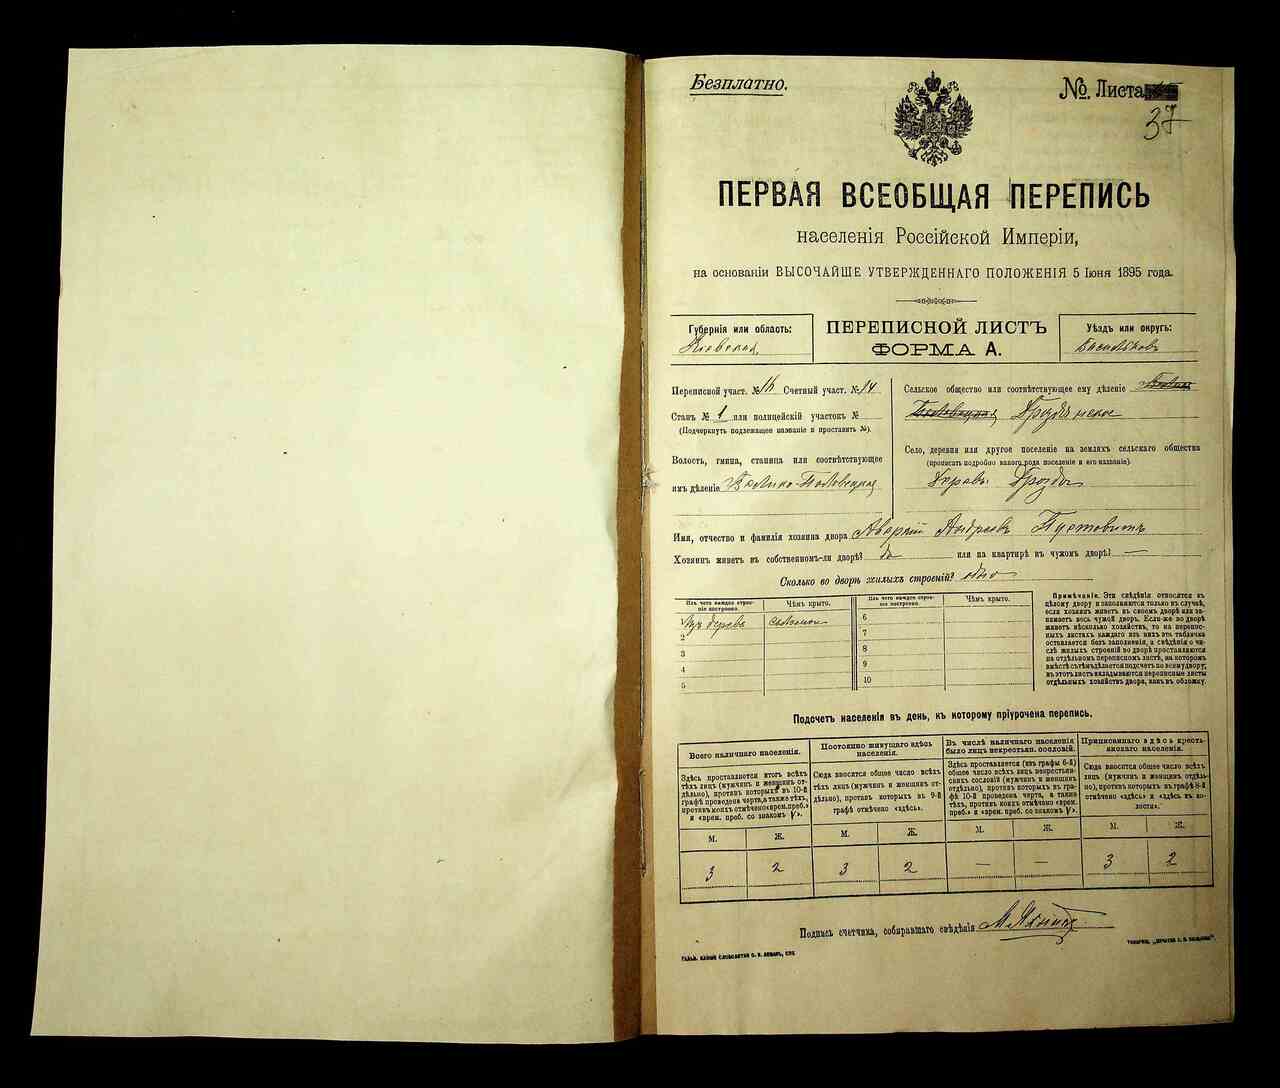 Безплатно.
№. Листа
37
ПЕРВАЯ ВСЕОБЩАЯ ПЕРЕПИСЬ
населенія Россійской Имперіи,
на основаніи ВЫСОЧАЙШЕ УТВЕРЖДЕННАГО ПОЛОЖЕНІЯ 5 Іюня 1895 года.
Губернія или область:
Кіевская
ПЕРЕПИСНОЙ ЛИСТЪ
ФОРМА А.
Уѣздъ или округъ:
Васильков
Переписной участ. № Счетный участ. № 14
Станъ № 1 или полицейскій участокъ №
(Подчеркнуть подлежащее названіе и проставить №).
Волость, гмина, станица или соотвѣтствующее
имъ дѣленіе Велико-Половецкая
Сельское общество или соотвѣтствующее ему дѣленіе
Половецкая Дроздянское
Село, деревня или другое поселеніе на земляхъ сельскаго общества
(прописать подробно какого рода поселеніе и его названіе).
Дерев. Дрозды
Имя, отчество и фамилія хозяина двора Аверкій Андреевъ Пустовитъ
Хозяинъ живетъ въ собственномъ-ли дворѣ? да или на квартирѣ въ чужомъ дворѣ? —
Сколько во дворѣ жилыхъ строеній? одно
Изъ чего каждое строе-
ніе построено.
Чѣмъ крыто.
Изъ чего каждое строе-
ніе построено.
Чѣмъ крыто.
1 Изъ дерева соломой
2
3
4
5
6
7
8
9
10
Примѣчаніе. Эти свѣдѣнія относятся къ
цѣлому двору и заполняются только въ случаѣ,
если хозяинъ живетъ въ своемъ дворѣ или за-
нимаетъ весь чужой дворъ. Если-же во дворѣ
живетъ нѣсколько хозяйствъ, то на перепис-
ныхъ листахъ каждаго изъ нихъ эта табличка
оставляется безъ заполненія, а свѣдѣнія о чи-
слѣ жилыхъ строеній во дворѣ проставляются
на отдѣльномъ переписномъ листѣ, на которомъ
вмѣстѣ съ тѣмъ дѣлается подсчетъ по всему двору;
въ этотъ листъ вкладываются переписные листы
отдѣльныхъ хозяйствъ двора, какъ въ обложку.
Подсчетъ населенія въ день, къ которому пріурочена перепись.
Всего наличнаго населенія.
Здѣсь проставляется итогъ всѣхъ
тѣхъ лицъ (мужчинъ и женщинъ от-
дѣльно), противъ которыхъ въ 10-й
графѣ проведена черта, а также тѣхъ,
противъ коихъ отмѣчено «врем. преб.»
и «врем. преб. со знакомъ V».
Постоянно живущаго здѣсь
населенія.
Сюда вносится общее число всѣхъ
тѣхъ лицъ (мужчинъ и женщинъ от-
дѣльно), противъ которыхъ въ 9-й
графѣ отмѣчено «здѣсь».
Въ числѣ наличнаго населенія
было лицъ некрестьян. сословій.
Здѣсь проставляется (изъ графы 6-й)
общее число всѣхъ лицъ некрестьян-
скихъ сословій (мужчинъ и женщинъ
отдѣльно), противъ которыхъ въ гра-
фѣ 10-й проведена черта, а также
тѣхъ, противъ коихъ отмѣчено «врем.
преб.» и «врем. преб. со знакомъ V».
Приписаннаго здѣсь кресть-
янскаго населенія.
Сюда вносится общее число всѣхъ
лицъ (мужчинъ и женщинъ отдѣль-
но), противъ которыхъ въ графѣ 8-й
отмѣчено «здѣсь» и «здѣсь къ во-
лости».
М. Ж. М. Ж. М. Ж. М. Ж.
3 2 3 2 — — 3 2
Подпись счетчика, собиравшаго свѣдѣнія